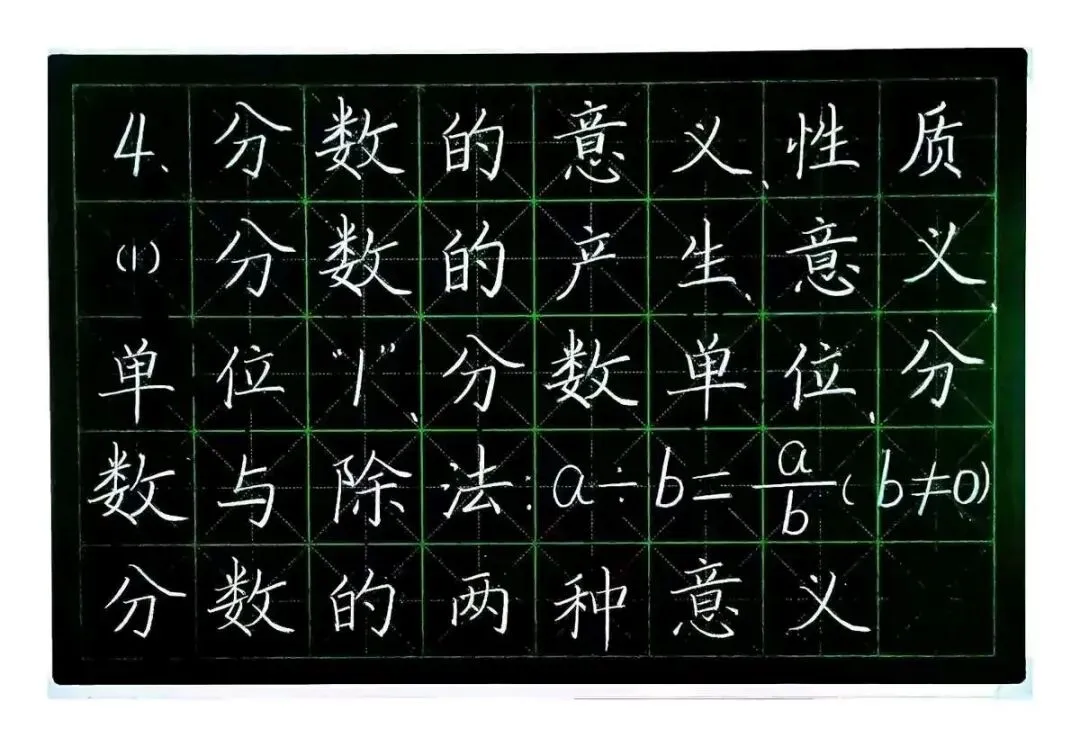 4、分数的意义、性质
(1)分数的产生、意义
单位“1”、分数单位、分
数与除法:a÷b=a/b(b≠0)
分数的两种意义